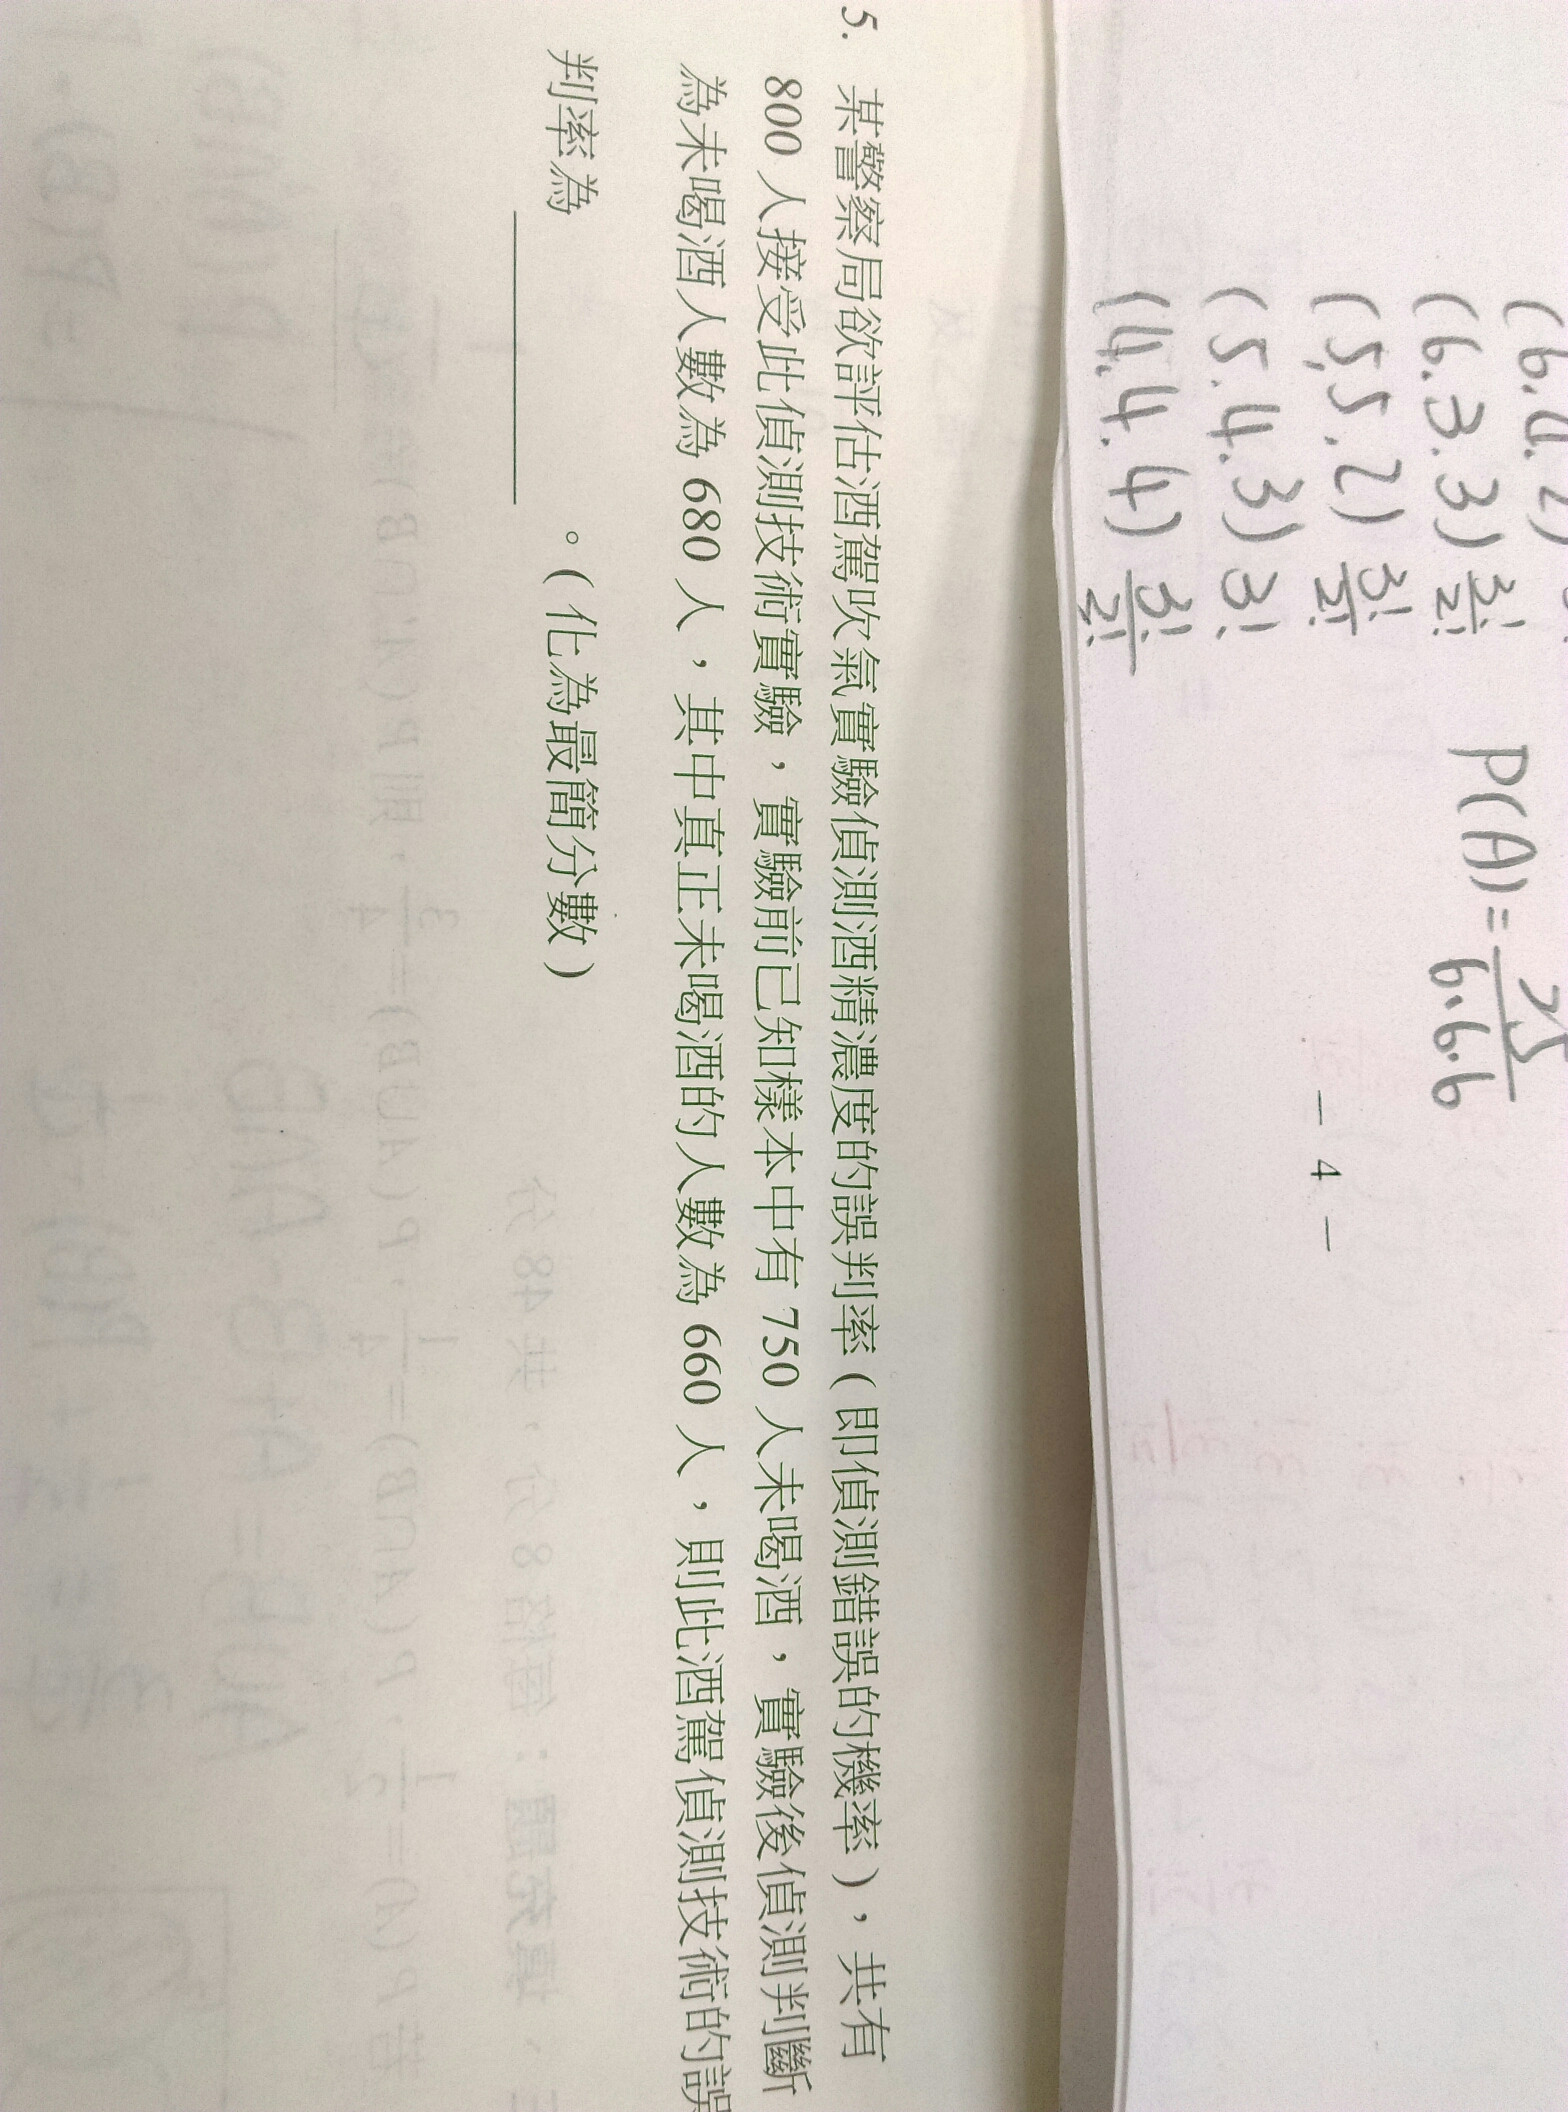 (6.3.3) 3!/2!
(5,5.2) 3!/2!
(5.4.3) 3!
(4.4.4) 3!/2!
P(A)= 25/6.6.6
- 4 -
5. 某警察局欲評估酒駕吹氣實驗偵測酒精濃度的誤判率(即偵測錯誤的機率),共有
800 人接受此偵測技術實驗,實驗前已知樣本中有 750 人未喝酒,實驗後偵測判斷
為未喝酒人數為 680 人,其中真正未喝酒的人數為 660 人,則此酒駕偵測技術的誤
判率為________。(化為最簡分數)